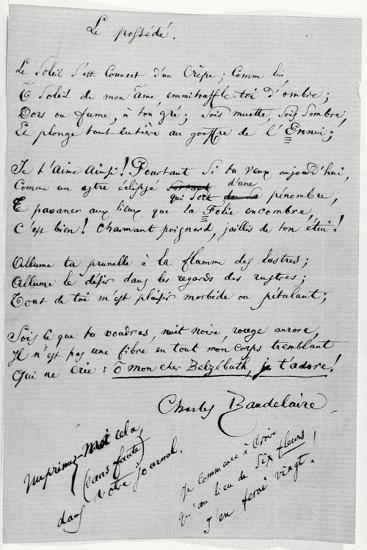 Le possédé.
Le Soleil s'est couvert d'un Crêpe ; Comme lui,
Ô Soleil de mon âme, emmitouffle toi d'ombre ;
Dors ou fume, à ton gré ; Sois muette, Sois Sombre,
Et plonge tout entière au gouffre de l'Ennui ;
Je t'aime Ainsi ! Pourtant Si tu veux aujourd'hui,
Comme un astre éclipsé qui sort d'une pénombre,
Te pavaner aux lieux que la Folie encombre,
C'est bien ! Charmant poignard, jaillis de ton étui !
Allume ta prunelle à la flamme des lustres ;
Allume le désir dans les regards des rustres ;
Tout de toi m'est plaisir morbide ou pétulant ;
Sois ce que tu voudras, nuit noire, rouge aurore,
Il n'est pas une fibre, en tout mon corps tremblant
Qui ne crie : Ô mon cher Belzébuth, je t'adore !
Charles Baudelaire.
Imprimez-moi cela,
(sans faute)
dans votre journal.
Je commence à croire
qu'au lieu de Six fleurs !
j'en ferai vingt.